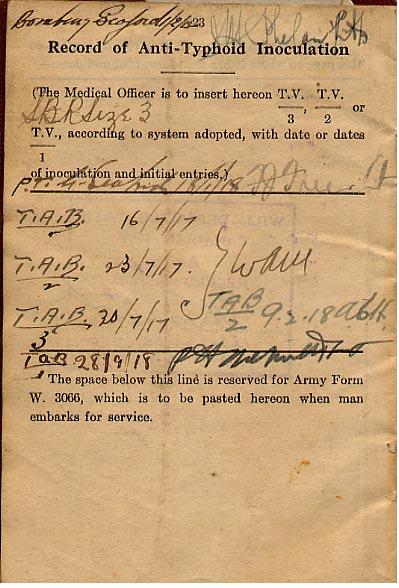 Seaford 1/8/18 23
Record of Anti-Typhoid Inoculation
(The Medical Officer is to insert hereon T.V., T.V.
3 2 or
SBR Size 3
T.V., according to system adopted, with date or dates
1
of inoculation and initial entries.)
18/1/18
T.A.B. 16/7/17
T.A.B. 23/7/17.
2
T.A.B. 30/7/17
3
TAB 9.2.18
2
TAB 28/9/18
1
The space below this line is reserved for Army Form
W. 3066, which is to be pasted hereon when man
embarks for service.